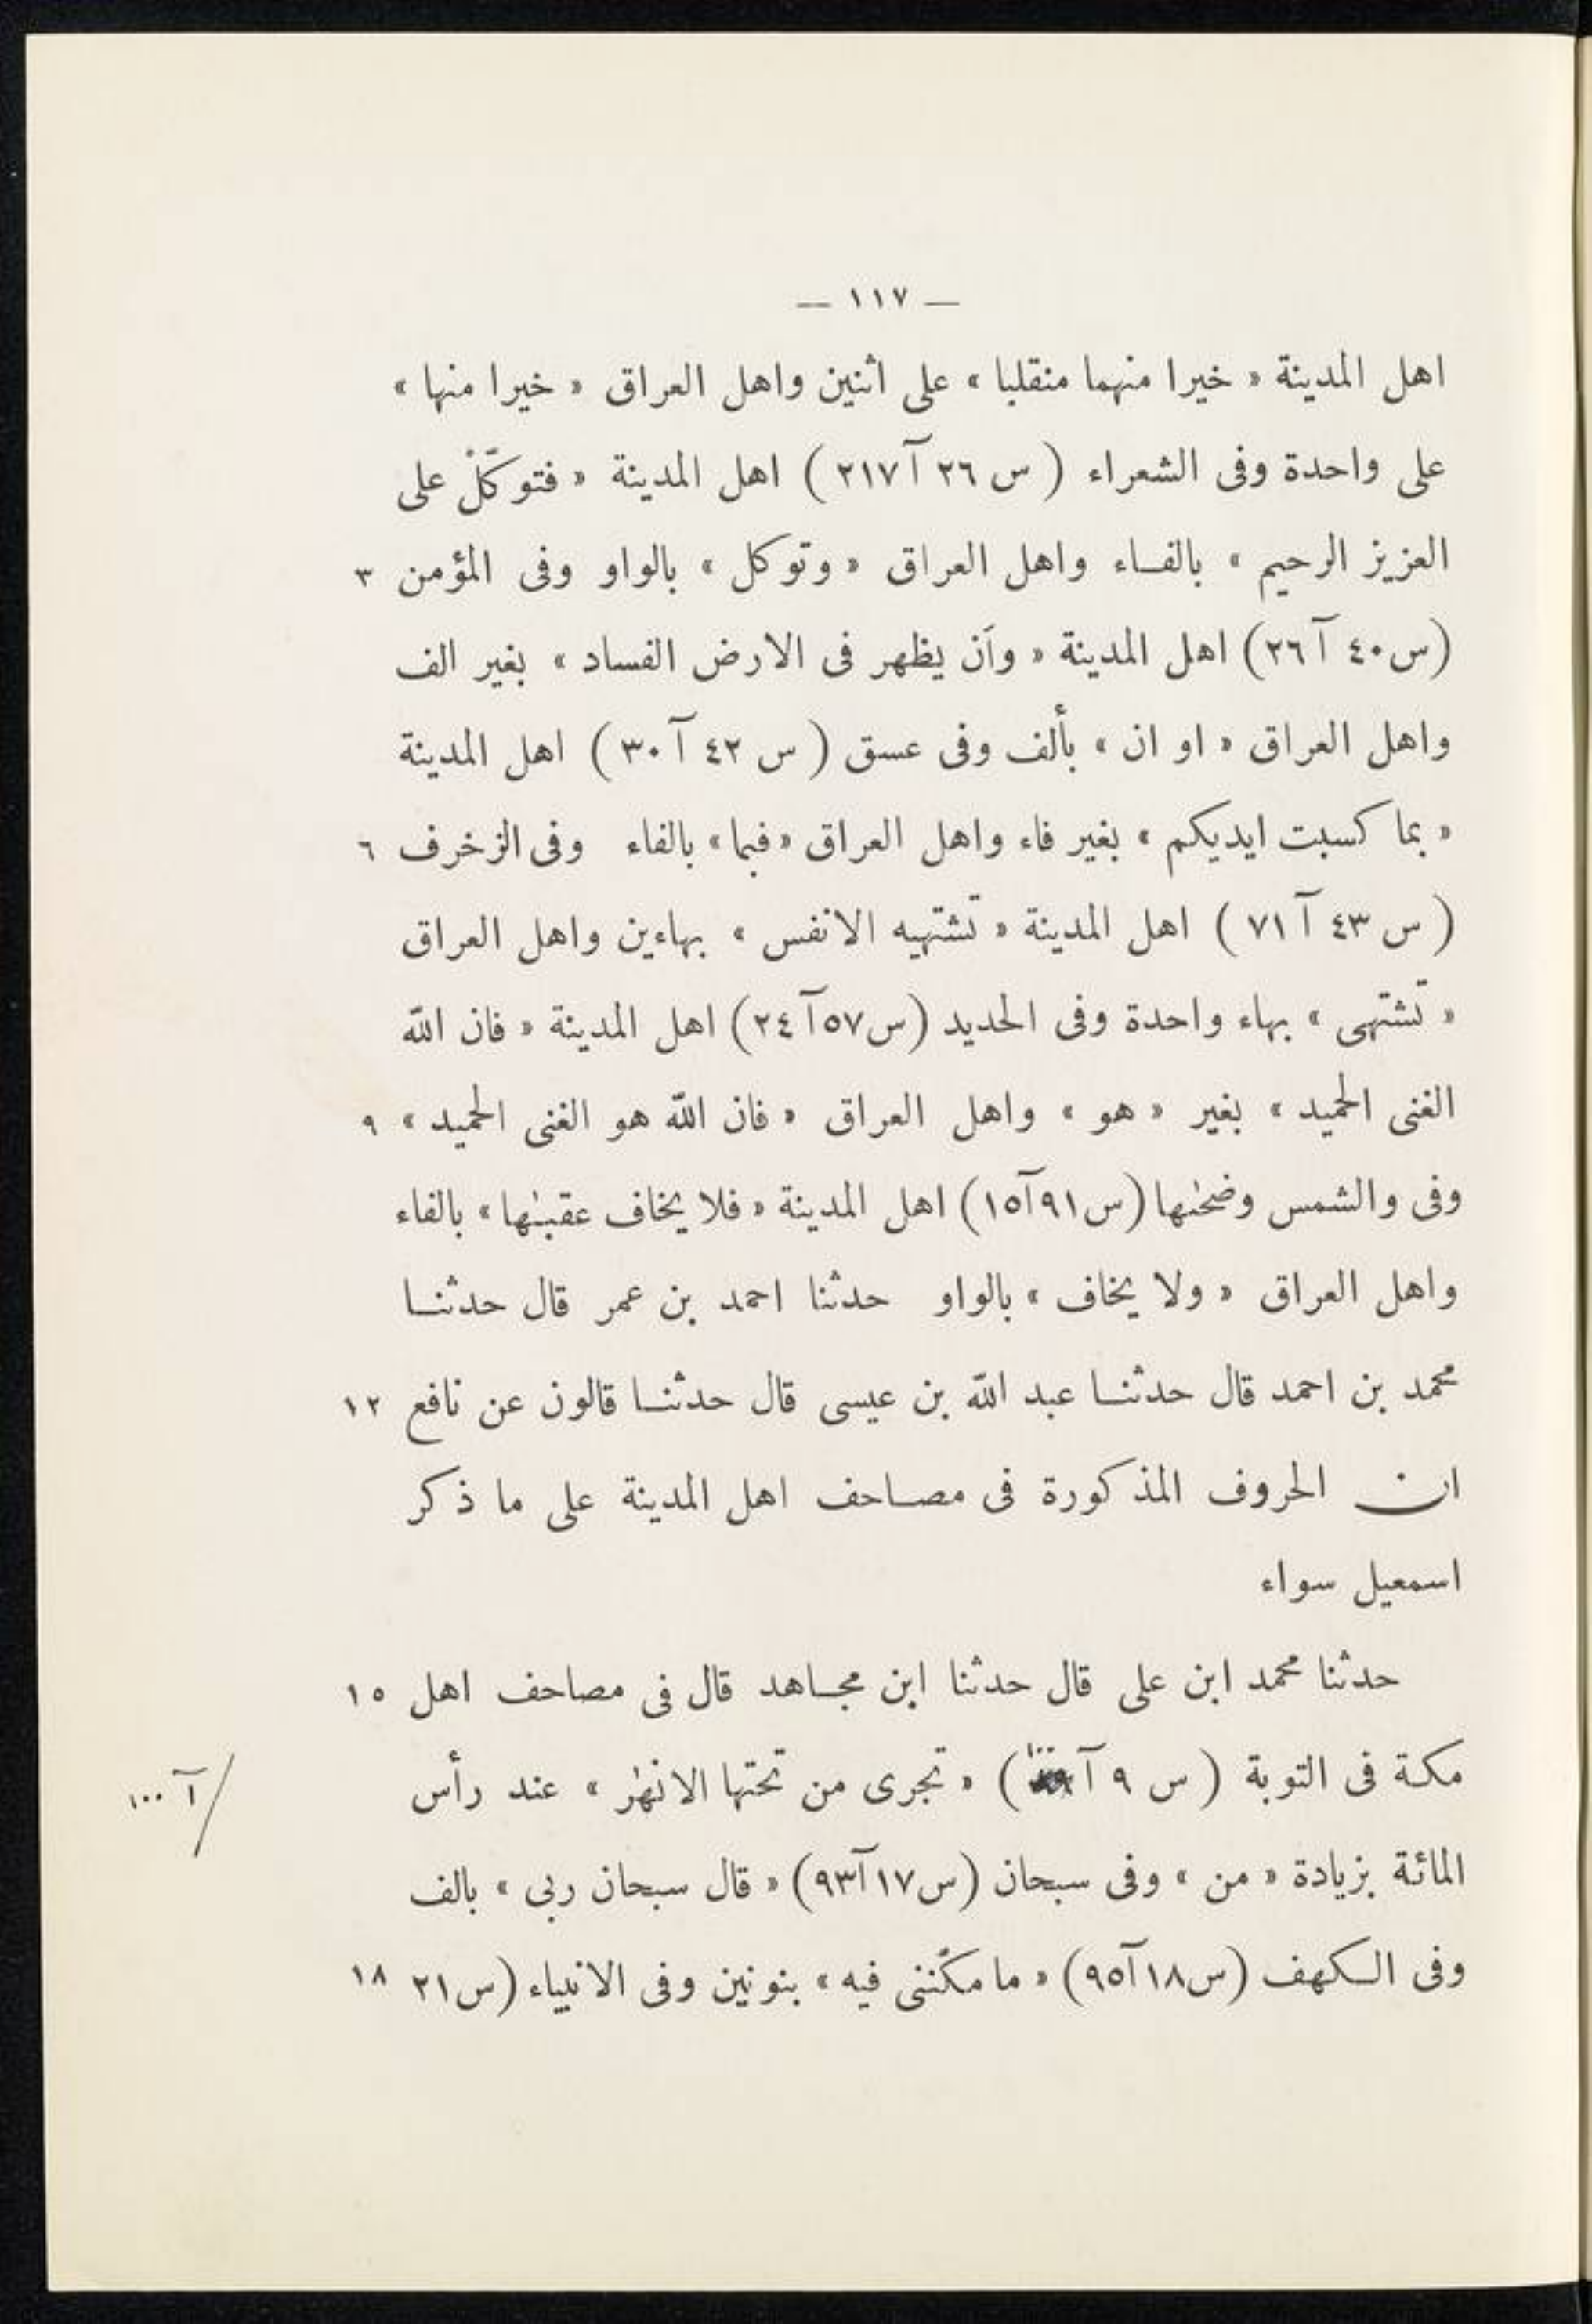 — ١١٧ —
اهل المدينة « خيرا منهما منقلبا » على اثنين واهل العراق « خيرا منها »
على واحدة وفى الشعراء ( س ٢٦ آ ٢١٧ ) اهل المدينة « فتوكّلْ على
العزيز الرحيم » بالفـاء واهل العراق « وتوكل » بالواو وفى المؤمن ٣
(س ٤٠ آ ٢٦) اهل المدينة « وأن يظهر فى الارض الفساد » بغير الف
واهل العراق « او ان » بألف وفى عسق ( س ٤٢ آ ٣٠ ) اهل المدينة
« بما كسبت ايديكم » بغير فاء واهل العراق « فبما » بالفاء وفى الزخرف ٦
( س ٤٣ آ ٧١ ) اهل المدينة « تشتهيه الانفس » بهاءين واهل العراق
« تشتهى » بهاء واحدة وفى الحديد (س ٥٧ آ ٢٤) اهل المدينة « فان اللّه
الغنى الحميد » بغير « هو » واهل العراق « فان اللّه هو الغنى الحميد » ٩
وفى والشمس وضحٰها (س ٩١ آ ١٥) اهل المدينة « فلا يخاف عقبٰها » بالفاء
واهل العراق « ولا يخاف » بالواو حدثنا احمد بن عمر قال حدثنـا
محمد بن احمد قال حدثنـا عبد اللّه بن عيسى قال حدثنـا قالون عن نافع ١٢
ان الحروف المذكورة فى مصـاحف اهل المدينة على ما ذكر
اسمعيل سواء
حدثنا محمد ابن على قال حدثنا ابن مجـاهد قال فى مصاحف اهل ١٥
مكة فى التوبة ( س ٩ آ ١٠٠ ) « تجرى من تحتها الانهٰر » عند رأس
آ ١٠٠
المائة بزيادة « من » وفى سبحان (س ١٧ آ ٩٣) « قال سبحان ربى » بالف
وفى الـكهف (س ١٨ آ ٩٥) « ما مكّننى فيه » بنونين وفى الانبياء (س ٢١ ١٨